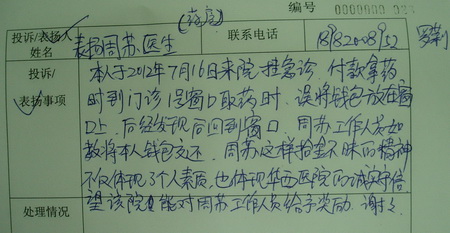 编号 0000000
(药房)
投诉/表扬人姓名 表扬周苏医生 联系电话
投诉/表扬事项
本人于2012年7月16日来院挂急诊.付款拿药
时到门诊窗口取药时.误将钱包放在窗
口上.后经发现后回到窗口.周苏工作人员如
数将本人钱包交还.周苏这样拾金不昧的精神
不仅体现了个人素质.也体现华西医院的诚实守信.
望该院能对周苏工作人员给予奖励.谢谢
处理情况